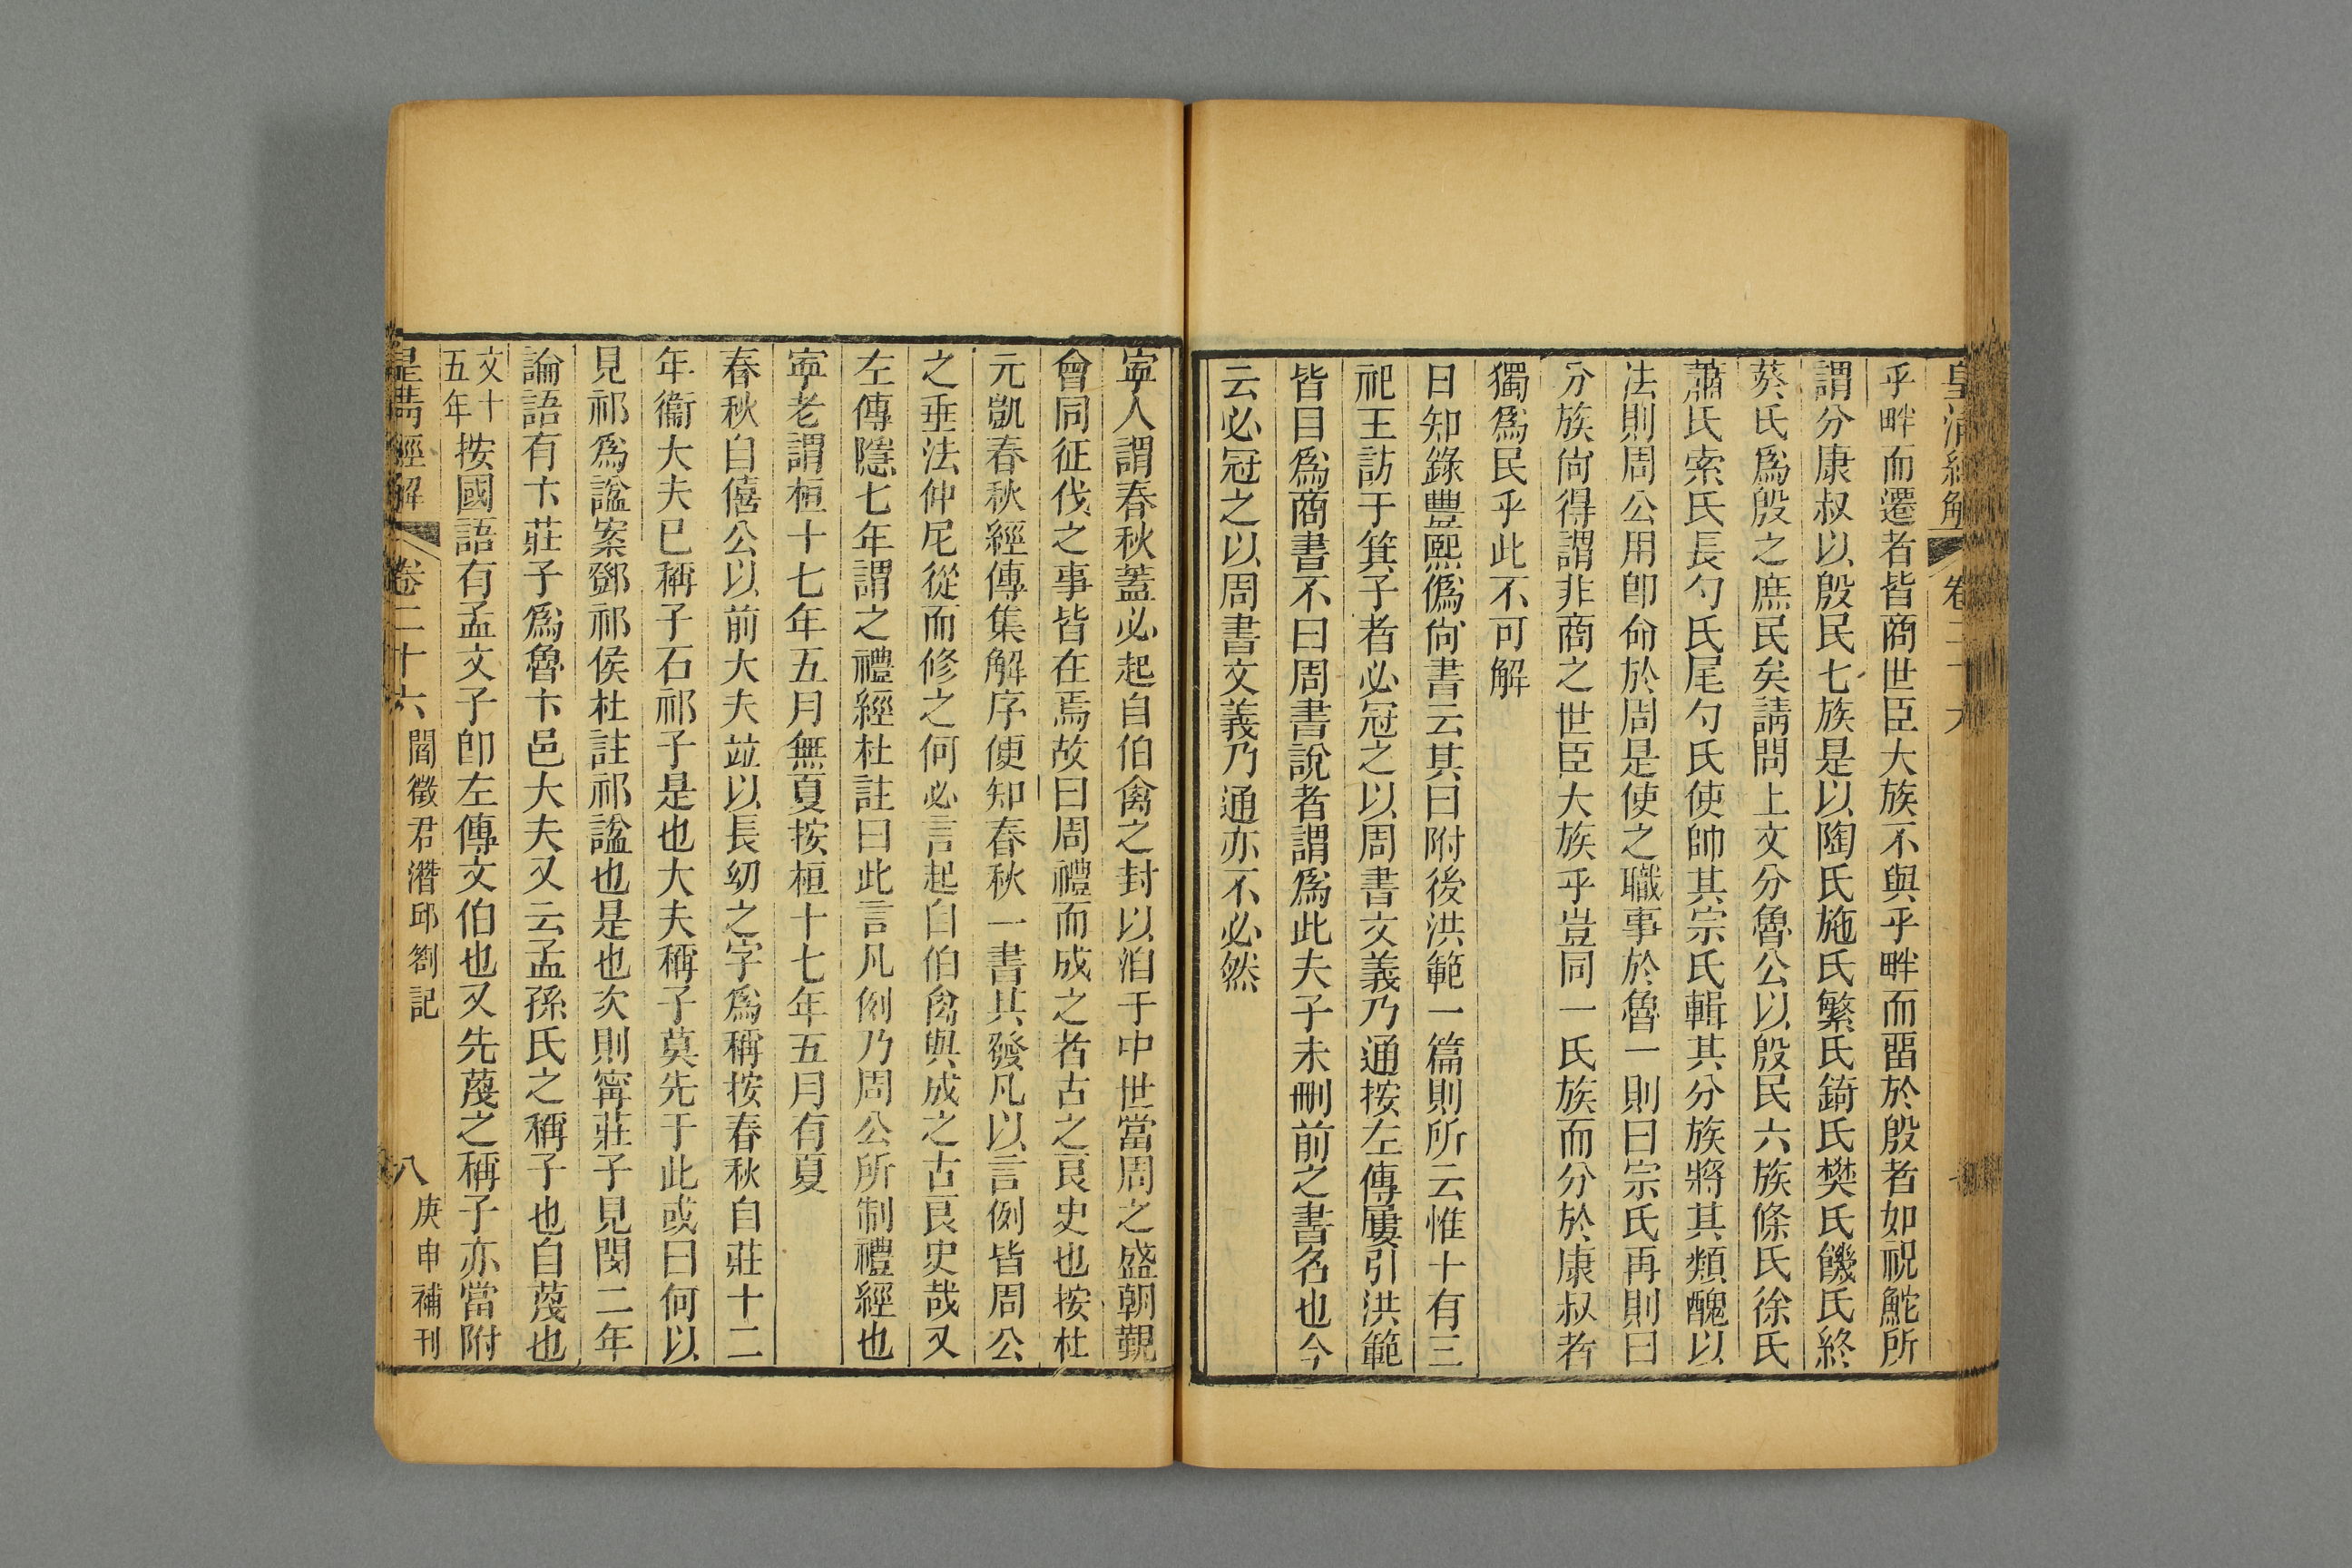 皇清經解
卷二十六
乎畔而遷者皆商世臣大族不與乎畔而畱於殷者如祝鮀所
謂分康叔以殷民七族是以陶氏施氏繁氏錡氏樊氏饑氏終
葵氏爲殷之庶民矣請問上文分魯公以殷民六族條氏徐氏
蕭氏索氏長勺氏尾勺氏使帥其宗氏輯其分族將其類醜以
法則周公用卽命於周是使之職事於魯一則曰宗氏再則曰
分族尙得謂非商之世臣大族乎豈同一氏族而分於康叔者
獨爲民乎此不可解
日知錄豐熙僞尙書云其曰附後洪範一篇則所云惟十有三
祀王訪于箕子者必冠之以周書文義乃通按左傳屢引洪範
皆目爲商書不曰周書說者謂爲此夫子未刪前之書名也今
云必冠之以周書文義乃通亦不必然
寧人謂春秋蓋必起自伯禽之封以洎于中世當周之盛朝覲
會同征伐之事皆在焉故曰周禮而成之者古之良史也按杜
元凱春秋經傳集解序便知春秋一書其發凡以言例皆周公
之垂法仲尼從而修之何必言起自伯禽與成之古良史哉又
左傳隱七年謂之禮經杜註曰此言凡例乃周公所制禮經也
寧老謂桓十七年五月無夏按桓十七年五月有夏
春秋自僖公以前大夫竝以長幼之字爲稱按春秋自莊十二
年衞大夫已稱子石祁子是也大夫稱子莫先于此或曰何以
見祁爲諡案鄧祁侯杜註祁諡也是也次則甯莊子見閔二年
論語有卞莊子爲魯卞邑大夫又云孟孫氏之稱子也自蔑也
文十五年按國語有孟文子卽左傳文伯也又先蔑之稱子亦當附
皇淸經解 卷二十六 閻徵君潛邱劄記 八 庚申補刊